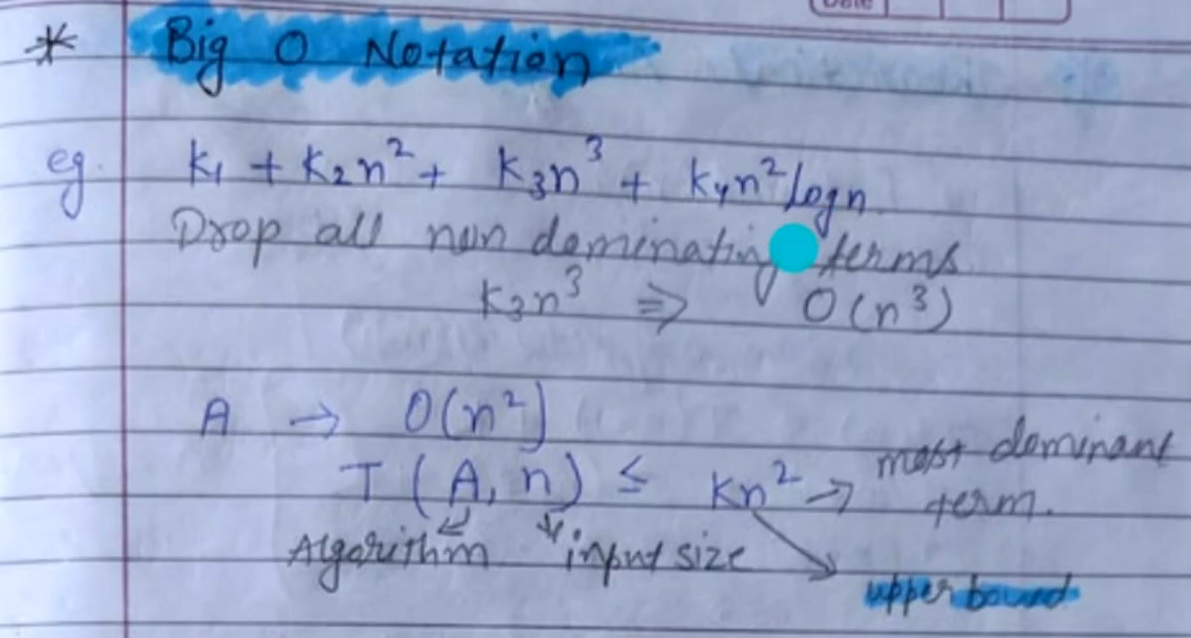 Date
* Big O Notation
eg. K₁ + K₂n² + K₃n³ + K₄n² logn
Drop all non dominating terms
K₃n³ ⇒ O(n³)
A → O(n²)
T (A, n) ≤ Kn² → most dominant
term.
Algorithm input size
upper bound